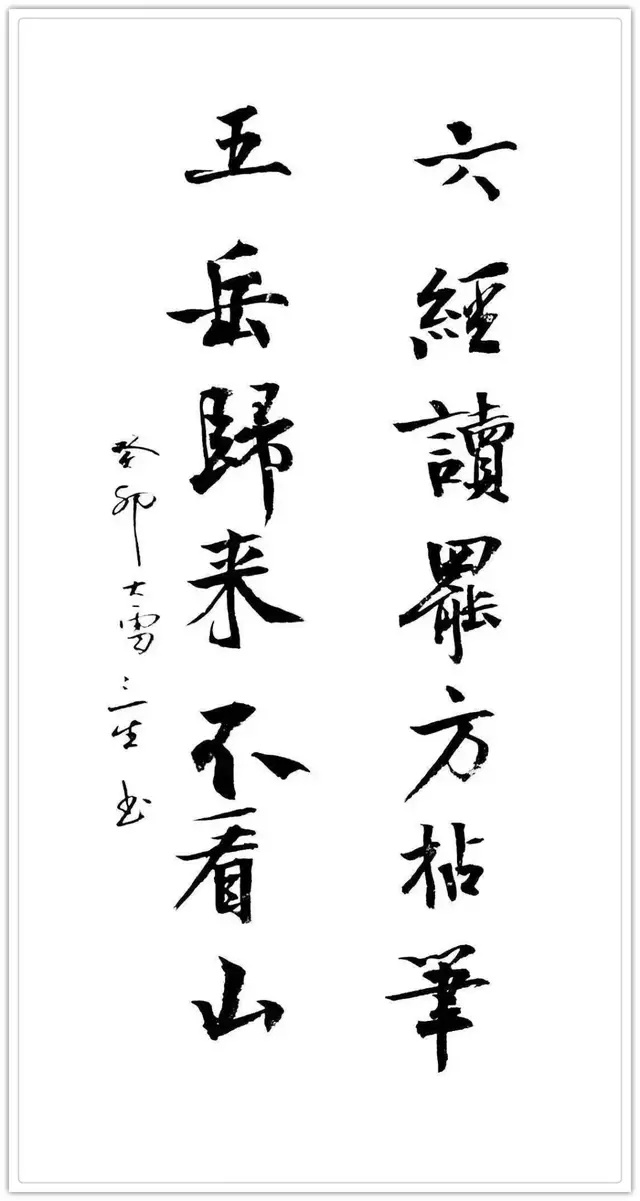 六經讀罷方拈筆
五岳歸来不看山
癸卯大雪三生书